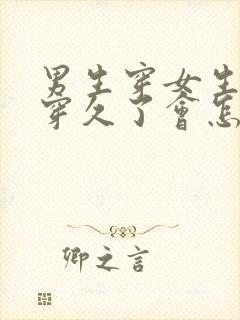 男生穿女生
穿久了會怎
卿之言